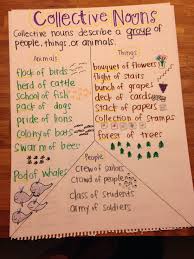 Collective Nouns
Collective nouns describe a group of
people, things, or animals.
Animals
flock of birds
herd of cattle
school of fish
pack of dogs
pride of lions
colony of bats
swarm of bees
Pod of whales
Things
bouquet of flowers
flight of stairs
bunch of grapes
deck of cards
stack of papers
Collection of stamps
forest of trees
People
crew of sailors
crowd of people
class of students
army of soldiers